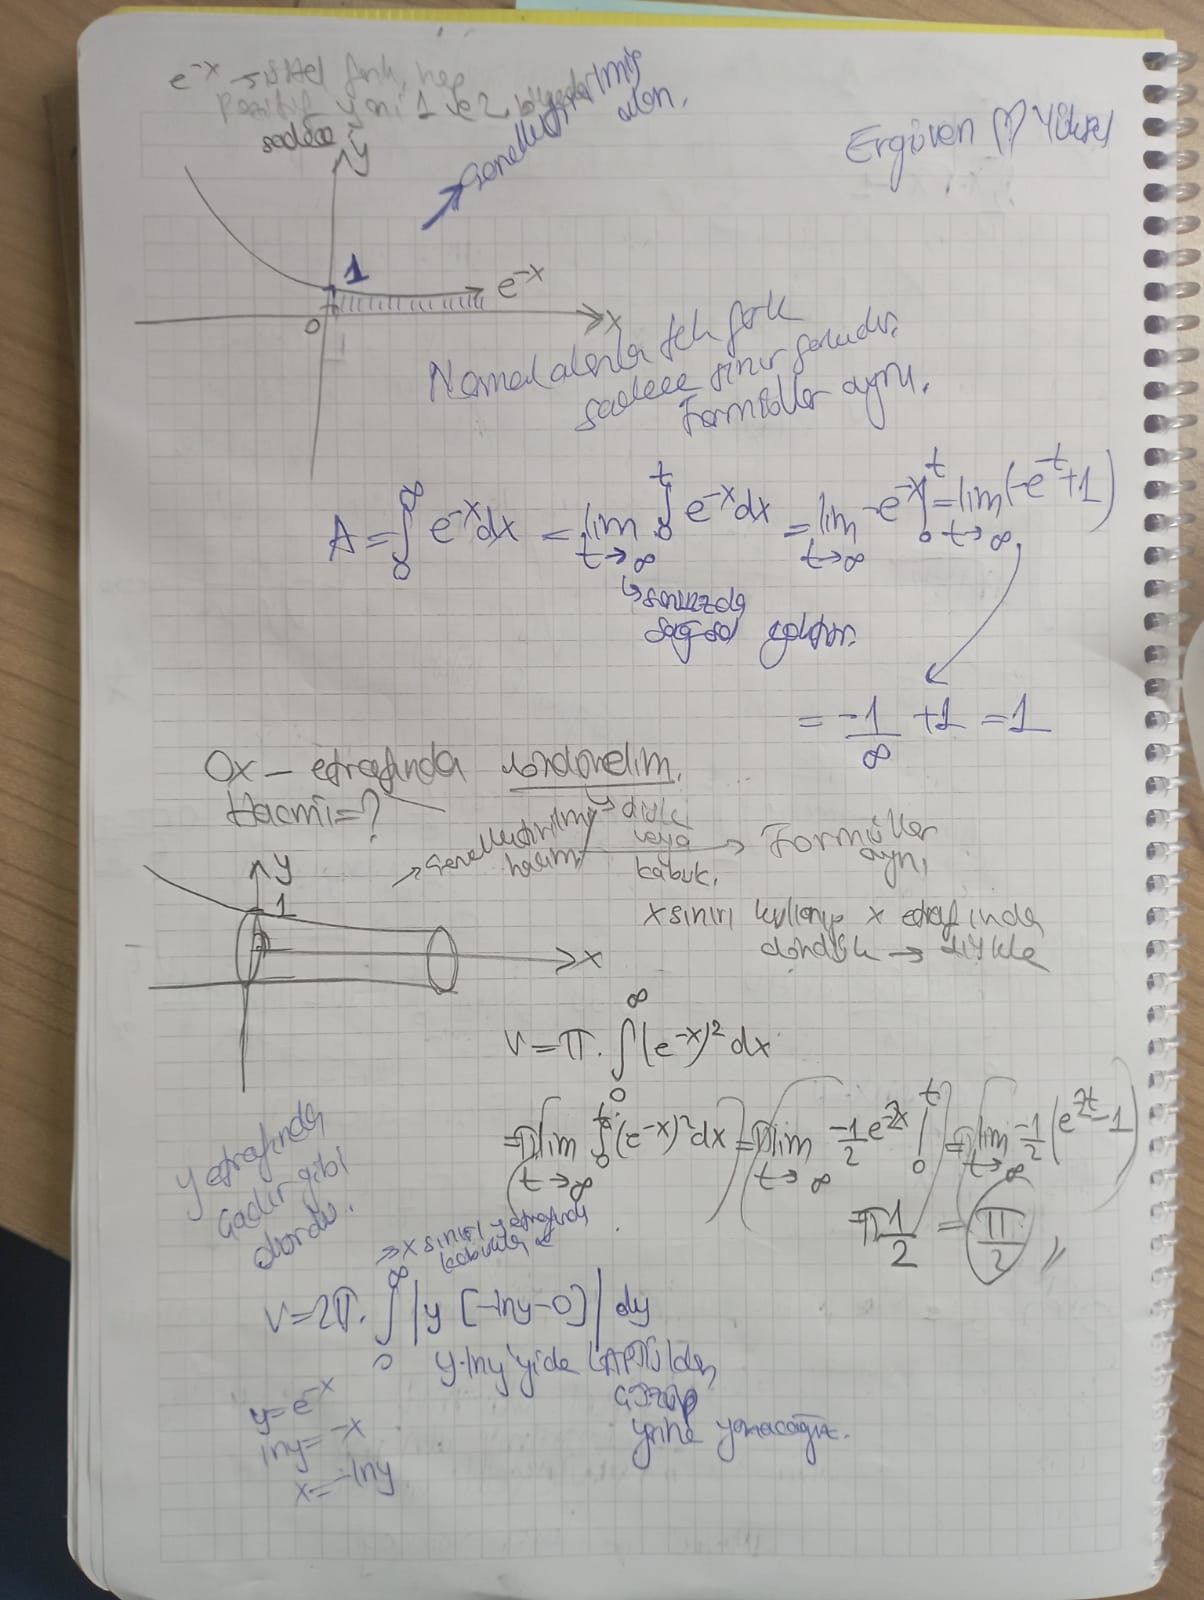 e^-x → üstel fonk, hep
pozitif yani 1 ve 2. bölgede
sadece
Genelleştirilmiş
alan.
Ergüven ♡ Yüksel
y
1
e^-x
0
x
Normal alanla tek fark
sadece sınır farkıdır.
Formüller aynı.
A = ∫_0^∞ e^-x dx = lim_{t→∞} ∫_0^t e^-x dx = lim_{t→∞} -e^-x |_0^t = lim_{t→∞} (-e^-t + 1)
↳ sonsuzda
sağ-sol
= -1/∞ + 1 = 1
Ox - etrafında döndürelim.
Hacmi = ?
→ Genelleştirilmiş hacim
→ disk
veya
kabuk.
→ Formüller
aynı
y
1
x
x sınırı kullanıp x etrafında
döndük → diskle
V = π. ∫_0^∞ (e^-x)^2 dx
= π lim_{t→∞} ∫_0^t (e^-x)^2 dx = π lim_{t→∞} -1/2 e^-2x |_0^t = π lim_{t→∞} -1/2 (e^2t - 1)
π 1/2 = π/2 //
y etrafında
çadır gibi
⇒ x sınırı y etrafında
V = 2π. ∫_0^∞ |y [-lny - 0]| dy
y.lny'yide LAPTÜ'den
çözüp
yine
y = e^-x
lny = -x
x = -lny